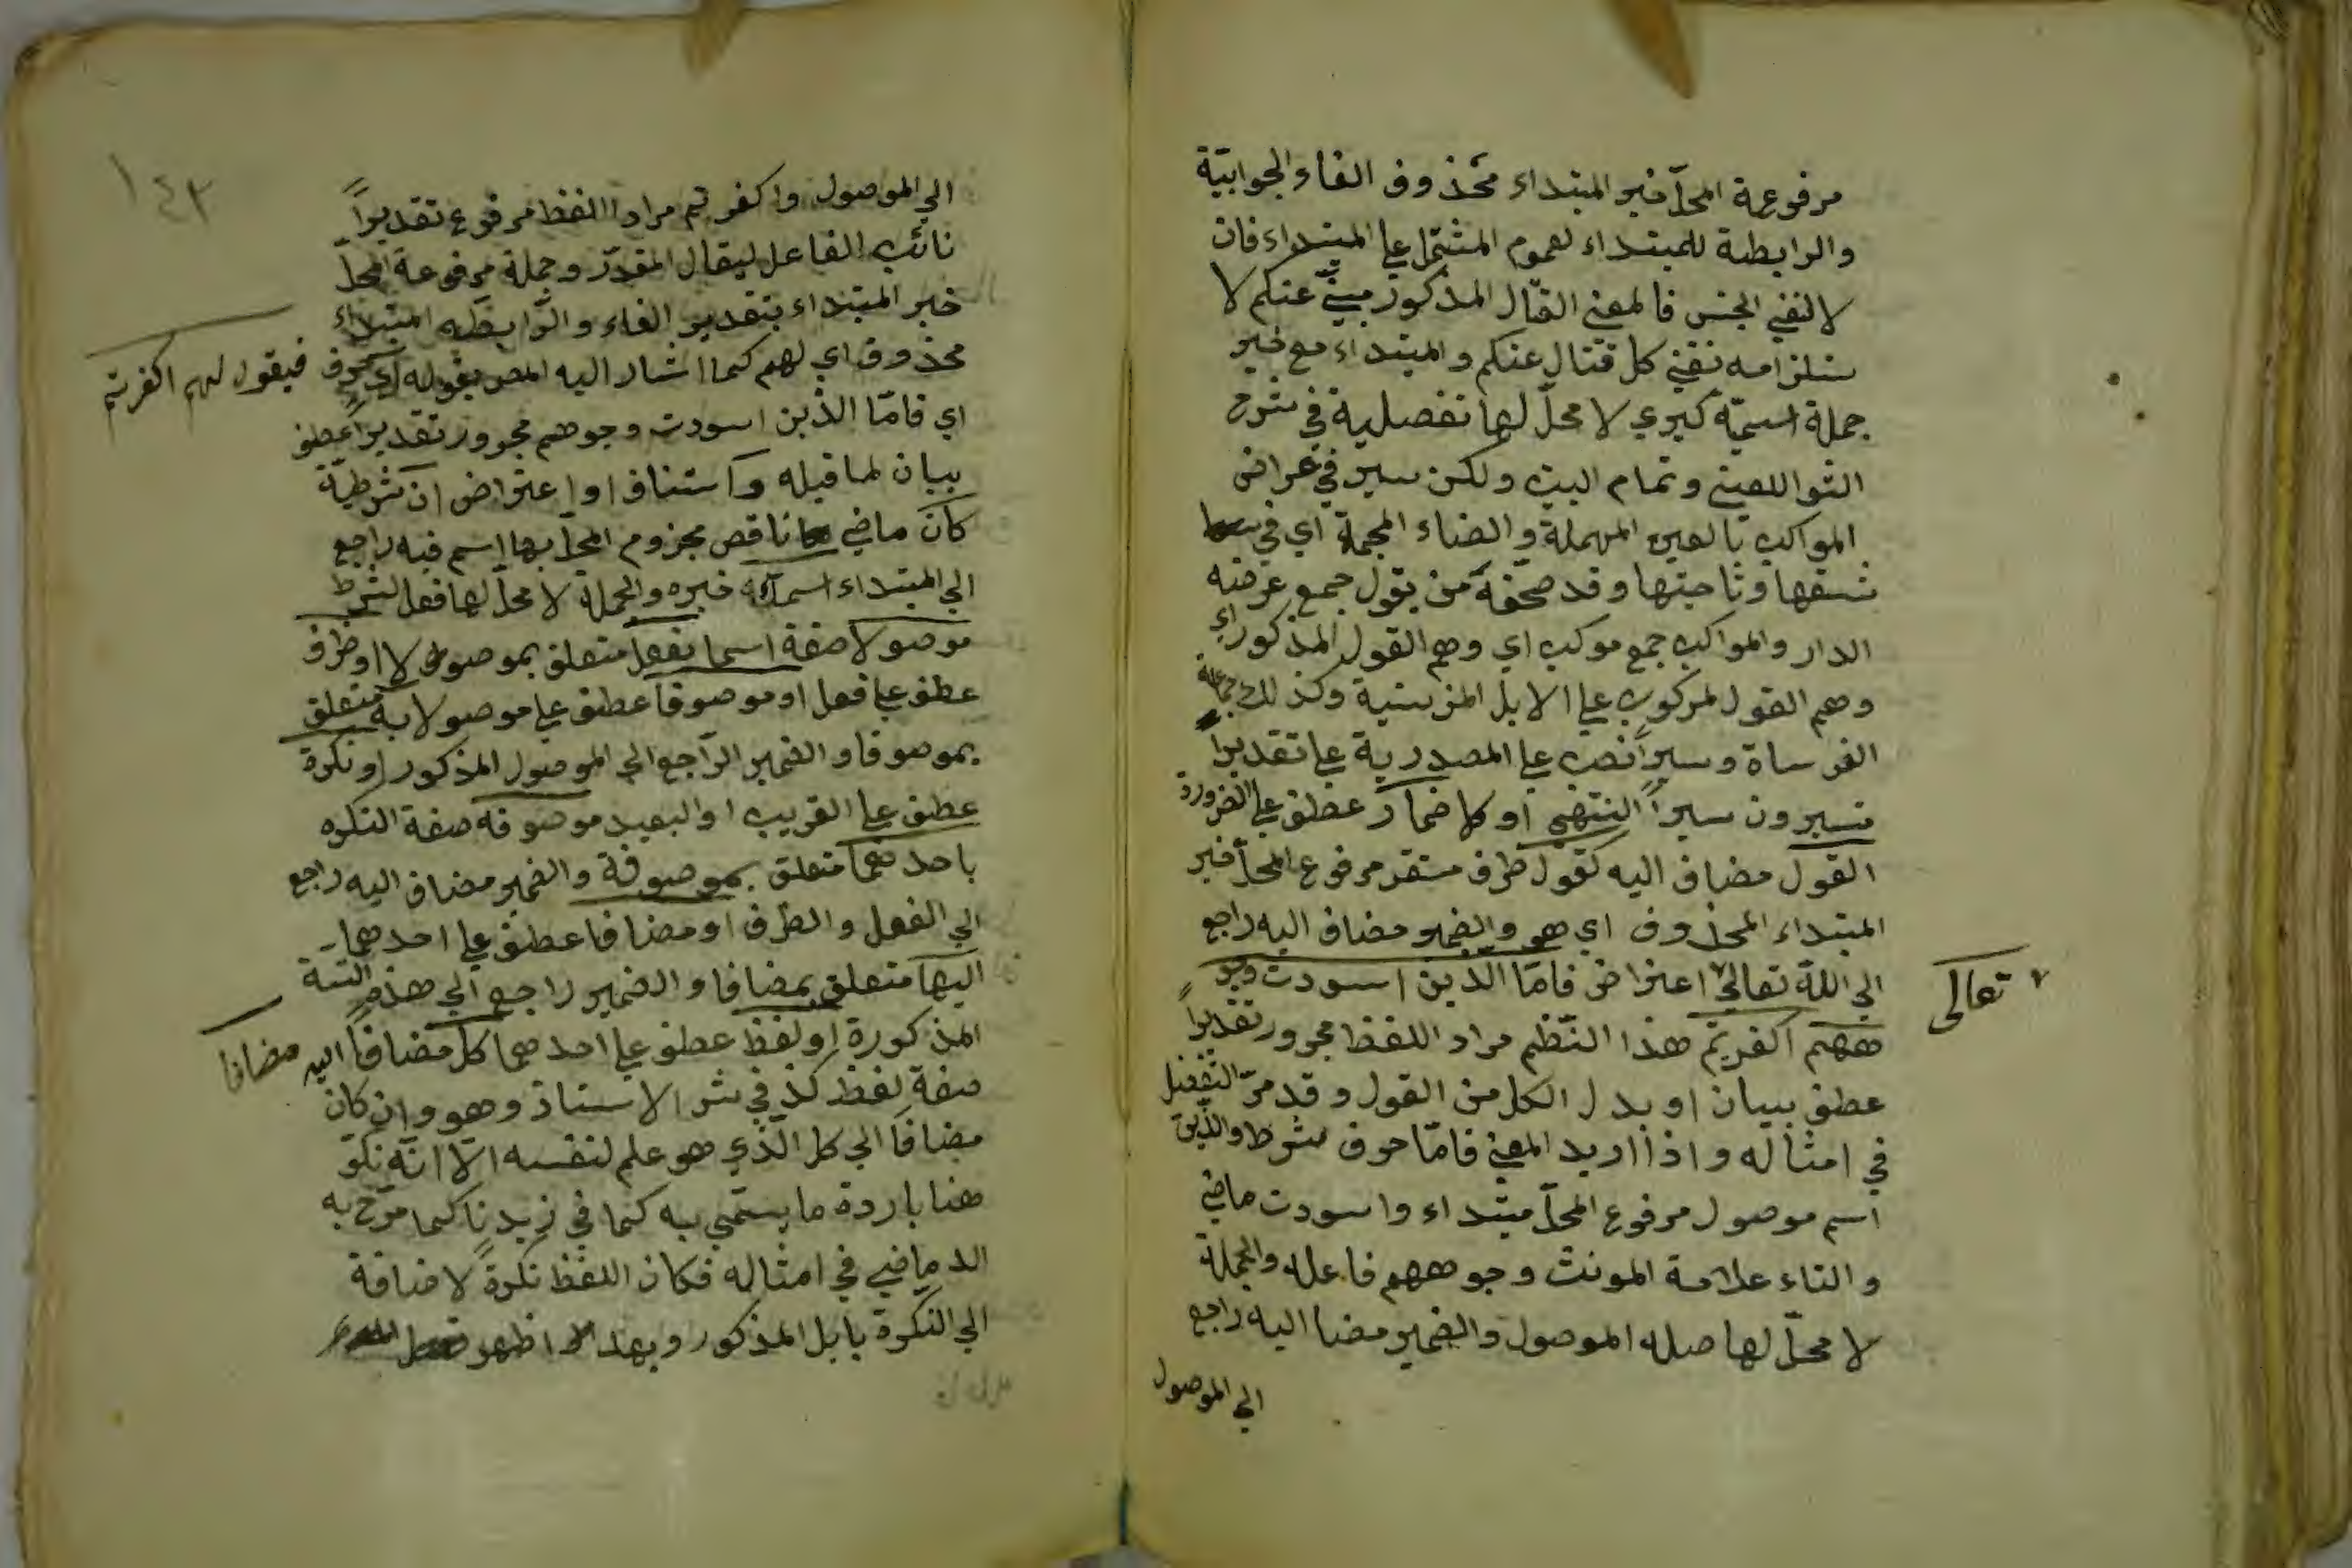 مرفوعة المحلّ خبر المبتداء محذوف الفاء الجوابيّة
والرابطة للمبتداء لعموم المشتمل علی المبتداء فان
لا لنفي الجنس فالمعنی القتال المذكور عنكم لا
ستلزامه نفي كل قتال عنكم والمبتداء مع خبر
جملة اسميّة كبري لا محلّ لها تفصيلية في شرح
الشواالعيني وتمام البيت ولكن سير في عراض
المواكب بالعين المهملة والضاء المجمة اي في
شقها وناحيتها وقد صحّفه من يقول جمع عرضه
الدار والمواكب جمع موكب اي وهم القول المذكور اي
وهم القول لمركوب علی الابل المزينية وكذلك جماعة
الفرساة وسيراً نصب علی المصدرية علی تقديراً
تسيرون سيراً انتهی او كاضمار عطف علی الضرورة
القول مضاف اليه كقول ظرف مستقر مرفوع المحلّ خبر
المبتداء المحذوف اي هو والضمير مضاف اليه راجع
الي اللّه تعالی اعتراض فامّا الذين اسودت وجو
تعالى
ههم اكفرتم هذا النّظم مراد اللفظ مجرور تقديراً
عطف بيان او بدل الكل من القول وقد مرّ التفصيل
في امثاله واذا اريد المعنی فامّا حرف شرط والذين
اسم موصول مرفوع المحلّ مبتداء واسودت ماضي
والتاء علامة المونث وجوههم فاعله والجملة
لا محلّ لها صله الموصول والضمير مضا اليه راجع
الي الموصول
١٤٣
الي الموصول واكفرتم مراد اللفظ مرفوع تقديراً
نائب الفاعل ليقال المقدّر وجملة مرفوعة المحلّ
خبر المبتداء بتقدير الفاء والرّابطه المبتداء
محذوف اي لهم كما اشار اليه المص بقوله
فيقول لهم اكفرتم
اي فامّا الذين اسودت وجوههم مجرور تقديراً عطف
بيان لما قبله واستناف او اعتراض ان شرطيّة
كان ماضي ناقص مجزوم المحلّ بها اسم فيه راجع
الي المبتداء اسما خبره والجملة لا محلّ لها فعل الشرط
موصولا صفة اسما بفعل متعلق بموصولا او ظرف
عطف علی فعل او موصوفا عطف علی موصولا به متعلق
بموصوفا والضمير الرّاجع الي الموصول المذكور او نكرة
عطف علی القريب او البعيد موصوفه صفة النكره
باحدهما متعلق بموصوفة والضمير مضاف اليه راجع
الي الفعل والظرف او مضافا عطف علی احدهما
اليها متعلق بمضافا والضمير راجع الي هذه الستة
المذكورة او لفظ عطف علی احدهما كل مضافاً اليه
مضافا
صفة لفظ كذ في شر الاستاذ وهو وان كان
مضافاً الي كل الّذي هو علم لنفسه الّا انّه نكرّ
هنا باردة ما يسمّی به كما في زيدنا كما صرّح به
الدماضي في امثاله فكان اللفظ نكرةً لاضافة
الي النكرة بابل المذكور وبهذا اظهر